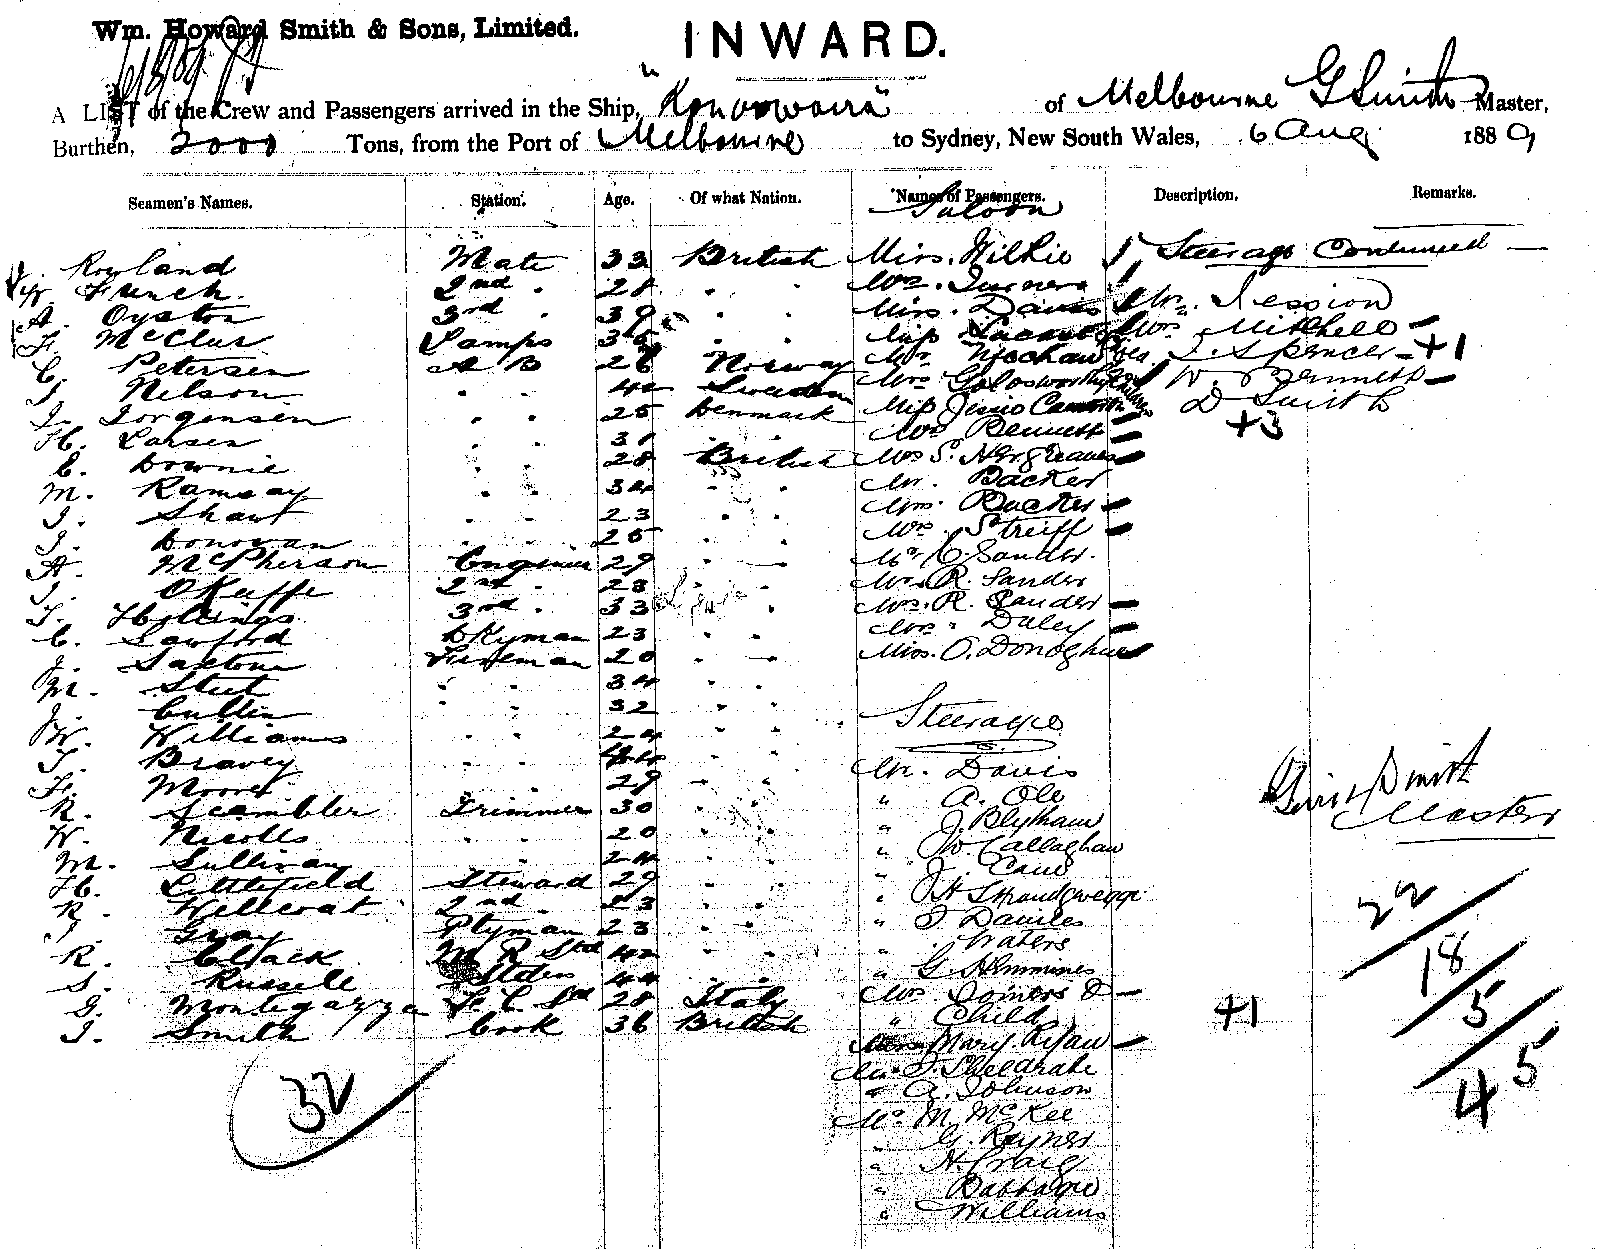 Wm. Howard Smith & Sons, Limited.
INWARD.
A LIST of the Crew and Passengers arrived in the Ship, "Konoowarra" of Melbourne G Smith Master,
Burthen, 2000 Tons, from the Port of Melbourne to Sydney, New South Wales, 6 Aug 1889
Seamen's Names. Station. Age. Of what Nation. Names of Passengers. Description. Remarks.
Saloon
Rowland Mate 33 British Mrs. Wilkie Steerage Continued
W. French 2nd " 28 " " Mr. Turner
A. Oyston 3rd " 39 " " Mrs. Davis Mr. Session
McClus Lamps 36 " " Miss Mrs Mitchell
C. Petersen A B 26 Norway Mr. J. Spencer +1
Nelson " " 42 Sweden Mrs Golosworthy W. Bennett
J. Jorgensen " " 25 Denmark Miss Jessie Cameron D Smith
H. Larsen " " 31 " " Mrs Bennett +3
C. Downie " " 28 British Mrs S. Hargreaves
M. Ramsay " " 34 " " Mr. Backer
J. Shaw " " 23 " " Mrs. Backer
J. Donovan " " 25 " " Mrs. Streiff
A. McPherson Engineer 29 " " Mr C. Sander.
J. OKeffe 2nd " 23 " " Mr. R. Sander
T. Hastings 3rd " 33 " " Mrs. R. Sander
C. Lawford Dkyman 23 " " Mrs. Daley
J. Saxton Fireman 20 " " Mrs. O. Donoghue
M. Steet " " 34 " "
J. Cullen " " 32 " " Steerage
W. Williams " " 24 " "
T. Bravey " " 44 " " Mr. Davis
H. Moore " " 29 " " " A. Ole
R. Scambler Trimmer 30 " " " J. Blytham
W. Nicolls " " 20 " " " W. Callaghan
M. Sullivan " " 24 " " " J. Cane
H. Littlefield Steward 29 " " " H
R. 2nd " 23 " " " J. Daniles
J. Gray Ptyman 23 " " " Waters
R. Clack M R Std 42 " " " G Hemmines
S. Russell Stdess 44 " " Mrs Joiners D
G. Montegazza Fe C. Std 28 Italy " Child +1
J. Smith Cook 36 British Mary Ryan
32
Mr. F. Sheldrake
" A. Johnson
Mr M. McKee
" G. Rayner
" H. Craig
" Babbage
" Williams
Smith
Master
22
18
5
45